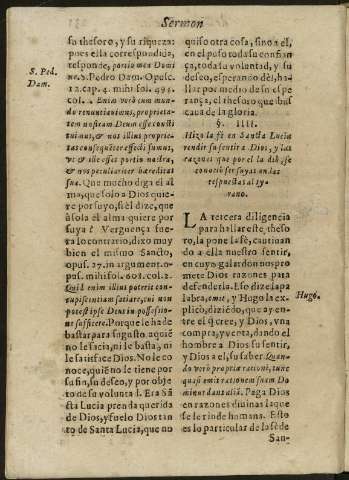 Sermon
so thesoro, y su riqueza:
pues ella correspondiò,
responde, portio mea Domi
ne. S. Pedro Dam. Opusc.
12. cap. 4. mihi fol. 494.
col. Enim verò cum mun-
du renuntiauimus, proprieta-
tem nostram Deum esse consti
tuimus, & nos illius proprie-
tas consequẽter effecti sumus,
vt & ille esset portio nostra,
& nos peculiariter hæreditas
sua. Que mucho diga el al
ma, que solo a Dios quie-
re por suyo, si èl dize, que
à sola el alma quiere por
suya? Verguença fue-
ra lo contrario, dixo muy
bien el mismo Santo,
opus. 27. in argument. o-
pus. mihi fol. 601. col. 2.
Quid enim illius poterit con-
cupiscentiam satiare, cui non
potest ipse Deus in possessio-
ne sufficere. Porque le ha de
bastar para su gusto, aquiẽ
no le sacia, ni le basta, ni
le satisface Dios. No le co
noce, quiẽ no le tiene por
su fin, su deseo, y por obje
to de su voluntad. Era Sãta
Lucia prenda querida
de Dios, y fuelo Dios tan
to de Santa Lucia, que no
S. Ped.
Dam.
quiso otra cosa, sino a èl,
en el puso toda su confian
ça, toda su voluntad, y su
deseo, esperando dèl, ha-
llar por medio de su espe
rança, el thesoro que bus
caua de la gloria.
§. IIII.
Hizo la fè en Santa Lucia
rendir su sentir a Dios, y las
razones que por el la diò, se
conociò ser suyas en las
respuestas al ty-
rano.
LA tercera diligencia
para hallar este theso
ro, la pone la fè, cautiuan
do a ella nuestro sentir,
en cuyo galardon nos pro
mete Dios razones para
defenderla. Eso dize la pa
labra, emit, y Hugo la ex
plicò, diziẽdo, que ay en-
tre el q̃ cree, y Dios, vna
compra, y venta, dando el
hombre a Dios su sentir,
y Dios a el, su saber. Quan-
do verò propriæ rationi, tunc
quasi emit rationem suam Do
minus danti alii. Paga Dios
en razones diuinas la que
se le rinde humana. Esto
es lo particular de la fè de
San-
Hugo.